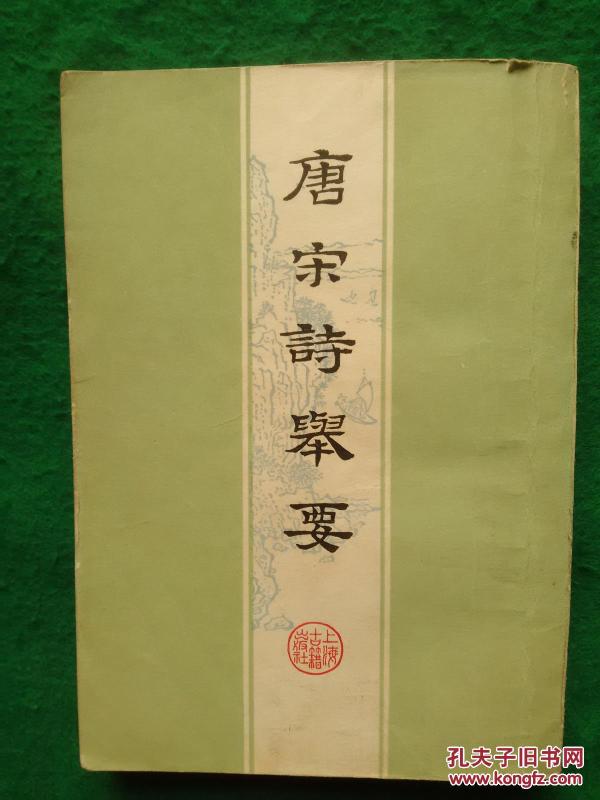 唐宋詩舉要
上海
古籍
出版社
孔夫子旧书网
www.kongfz.com